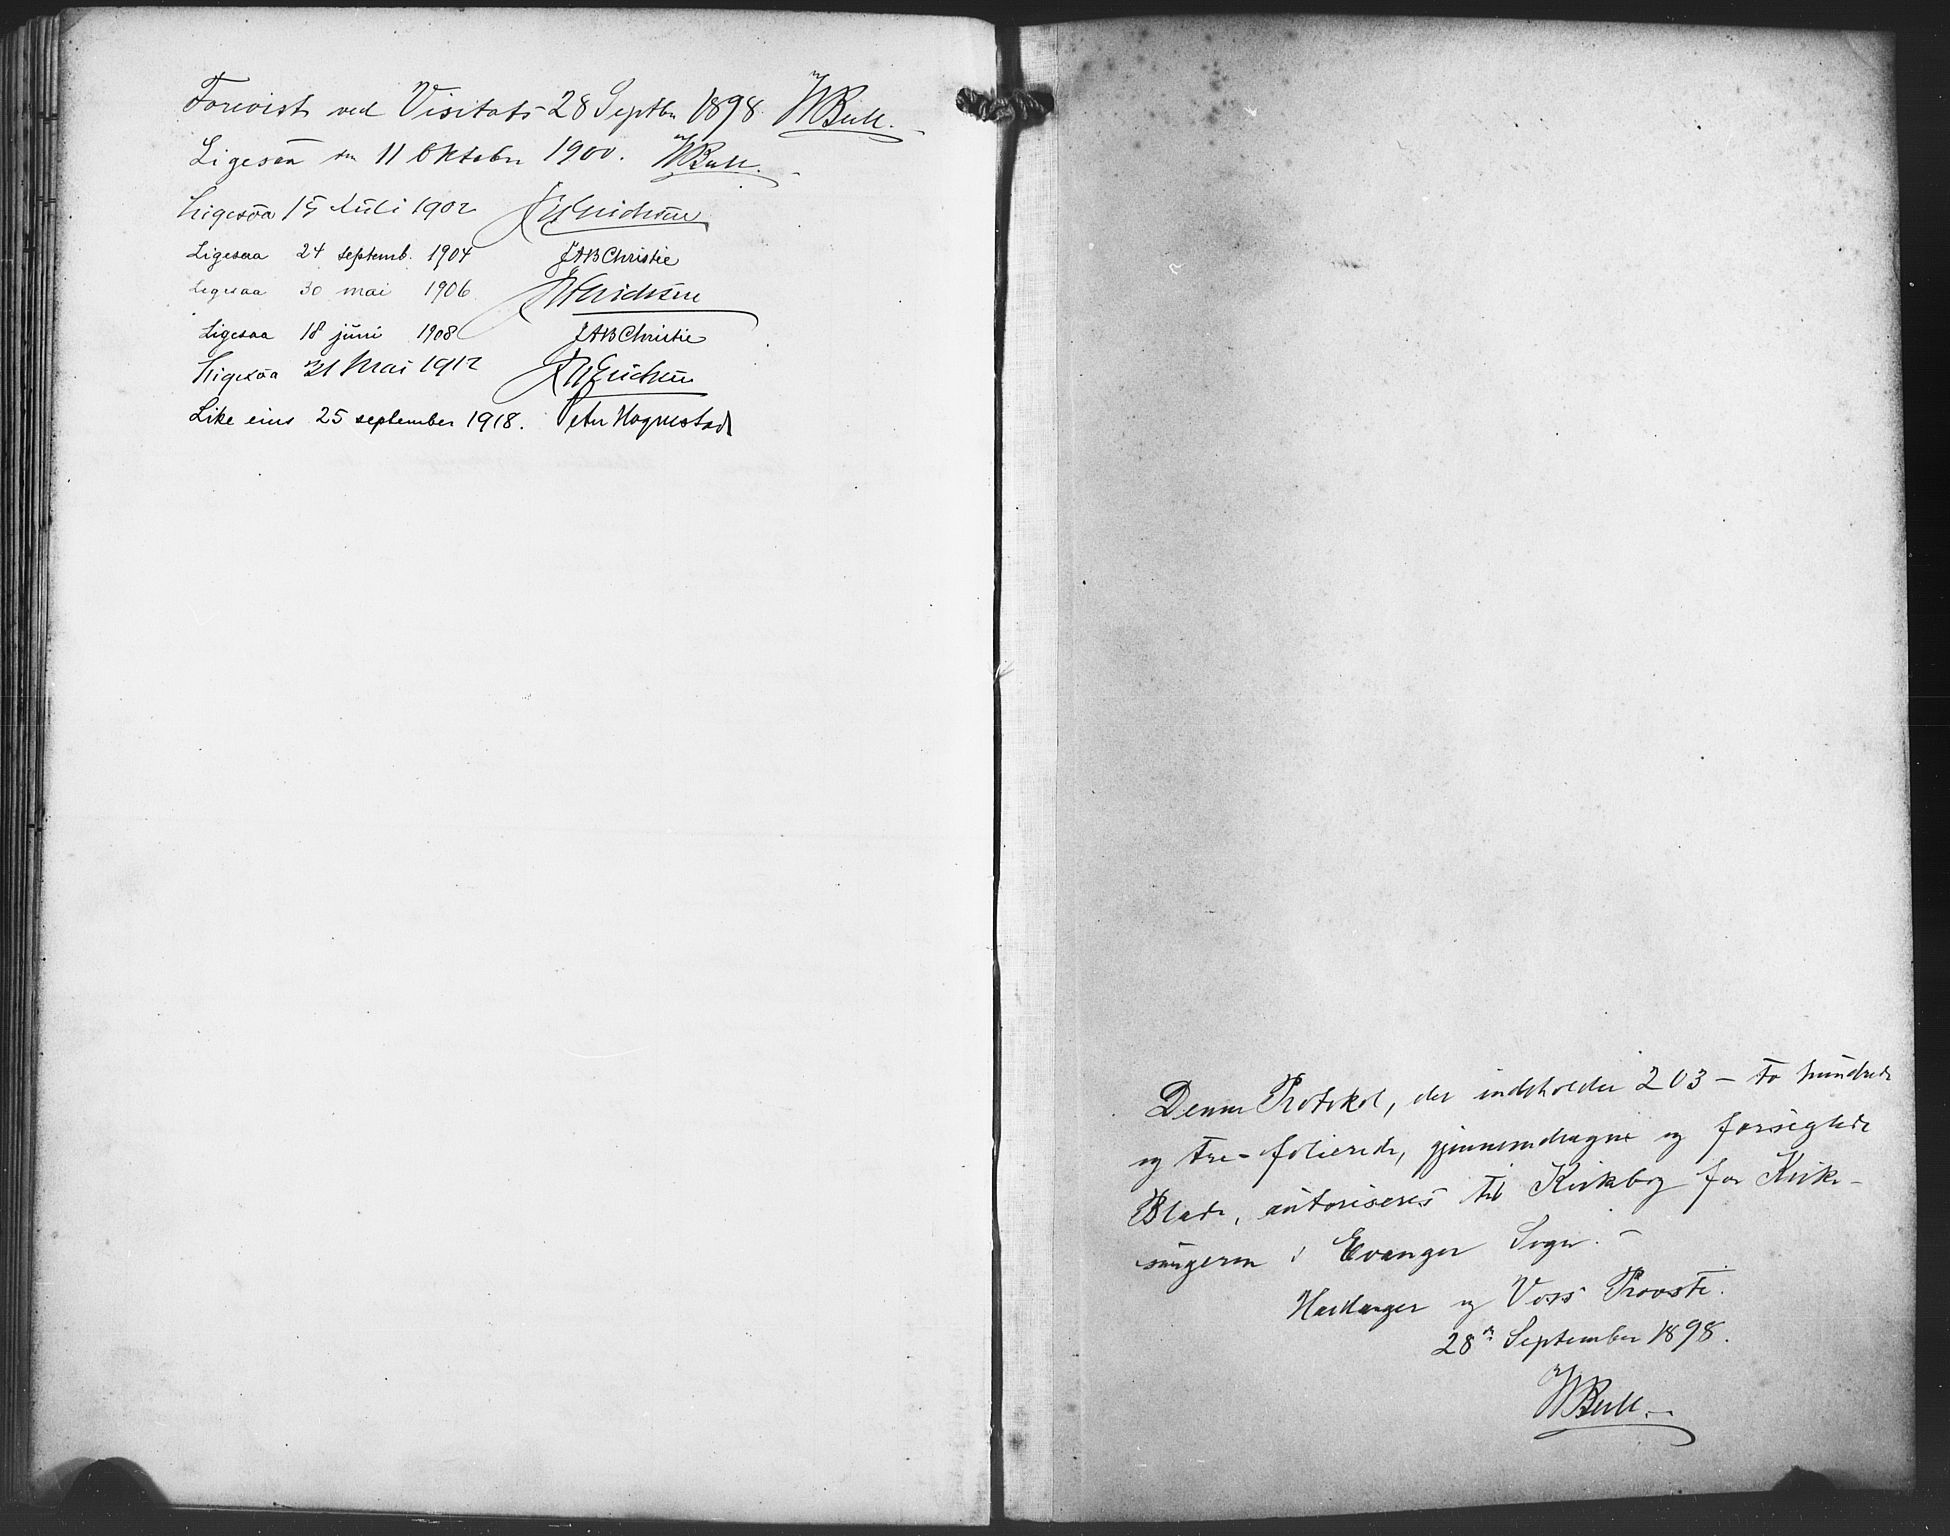 Forevist ved Visitats 28 Septbr 1898 WBull.
Ligesaa den 11 Oktober 1900. WBull.
Ligesaa 15 Juli 1902 Erichsen
Ligesaa 24 septemb. 1904 JABChristie
Ligesaa 30 mai 1906 Erichsen
Ligesaa 18 juni 1908 JABChristie
Ligesaa 31 Mai 1912 Erichsen
Like eins 25 september 1918. Peter Hognestad
Denne Protokol, der indeholder 203 – to hundrede
og tre – folierede, gjennemdragne og forseglede
Blade, autoriseres til Kirkebog for Kirke-
sangeren i Evanger Sogn. –
Hardanger og Voss Provsti.
28de September 1898.
WBull.